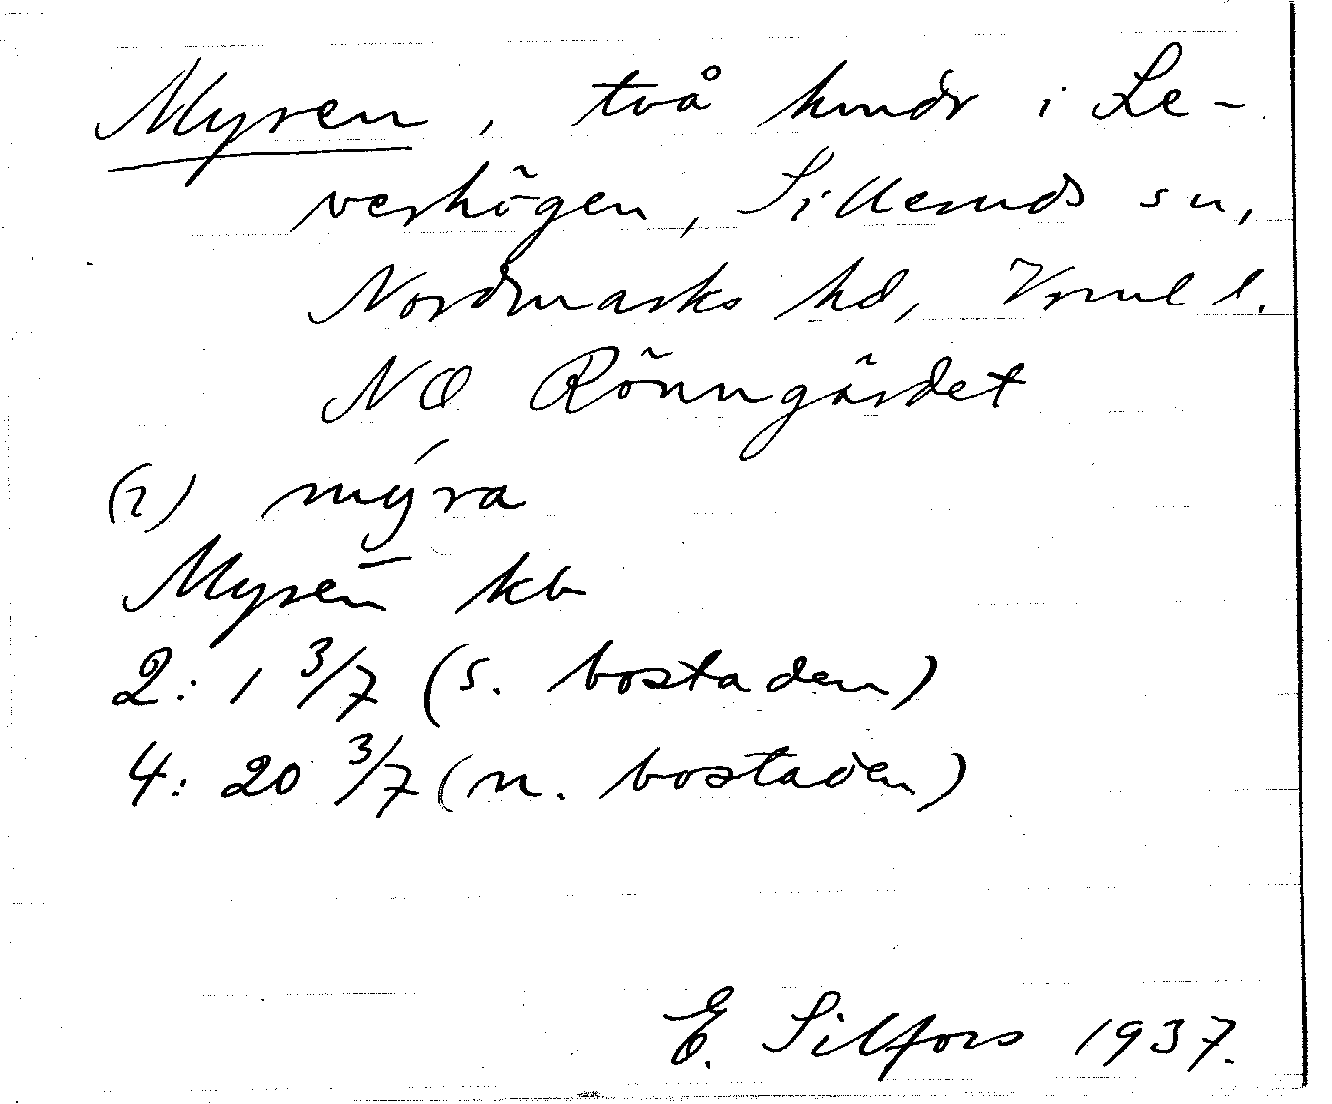 Myren, två hmdr i Le-
verhögen, Silleruds sn,
Nordmarks hd, Vrml l.
NO Rönngärdet
(i) mýra
Myren kb
2: 1 3/7 (s. bostaden)
4: 20 3/7 (n. bostaden)
E. Silfors 1937.